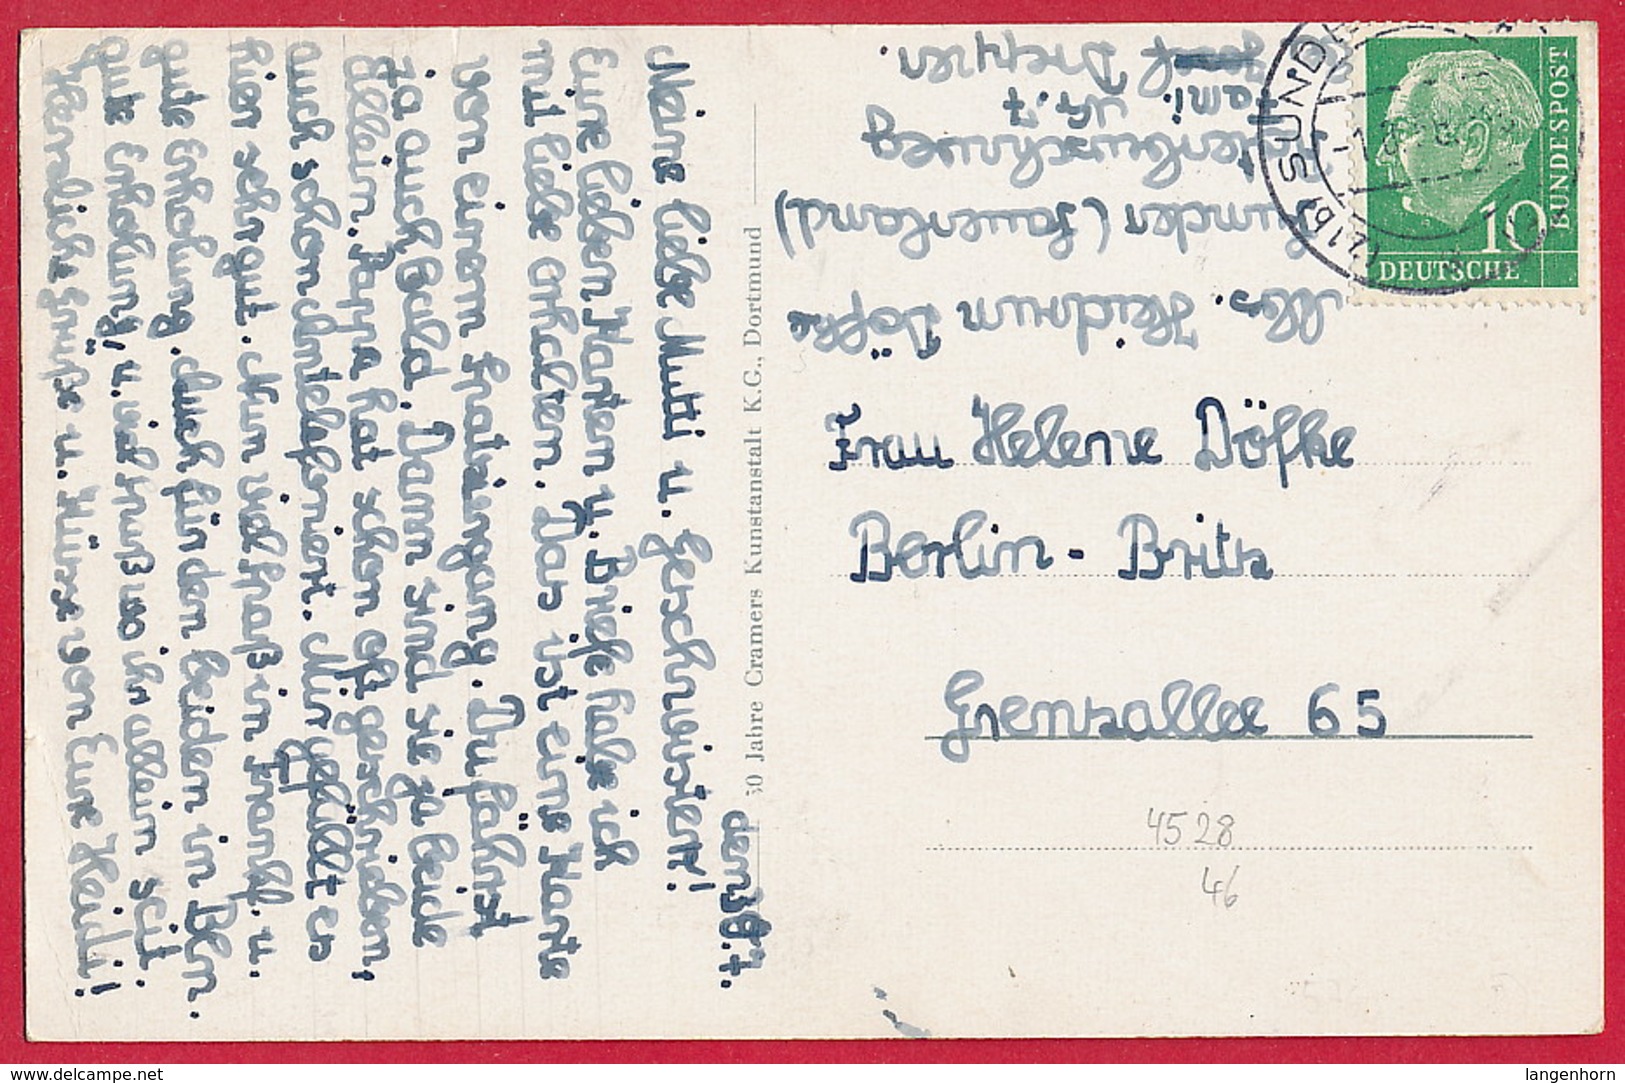 den 30.7.
Meine liebe Mutti u. Geschwister!
Eure lieben Karten u. Briefe habe ich
mit liebe erhalten. Das ist eine Karte
von einem Spatziergang. Du fährst
ja auch bald. Dann sind sie ja beide
allein. Pappa hat schon oft geschrieben,
auch schon chntelefoniert. Mir gefällt es
hier sehr gut. Nun viel Spaß in Frankf. u.
gute Erholung. Auch für den beiden in Bln.
gute Erholung, u. viel Spaß wo ihr allein seit.
Herzliche Grüße u. Küsse von Eure Heidi!
50 Jahre Cramers Kunstanstalt K.G., Dortmund
Abs. Heidrun Döfke
Sunder (Sauerland)
Nr. 7
(21b) SUNDE
DEUTSCHE
BUNDESPOST
10
Frau Helene Döfke
Berlin - Britz
Grenzallee 65
4528
46
www.delcampe.net
langenhorn